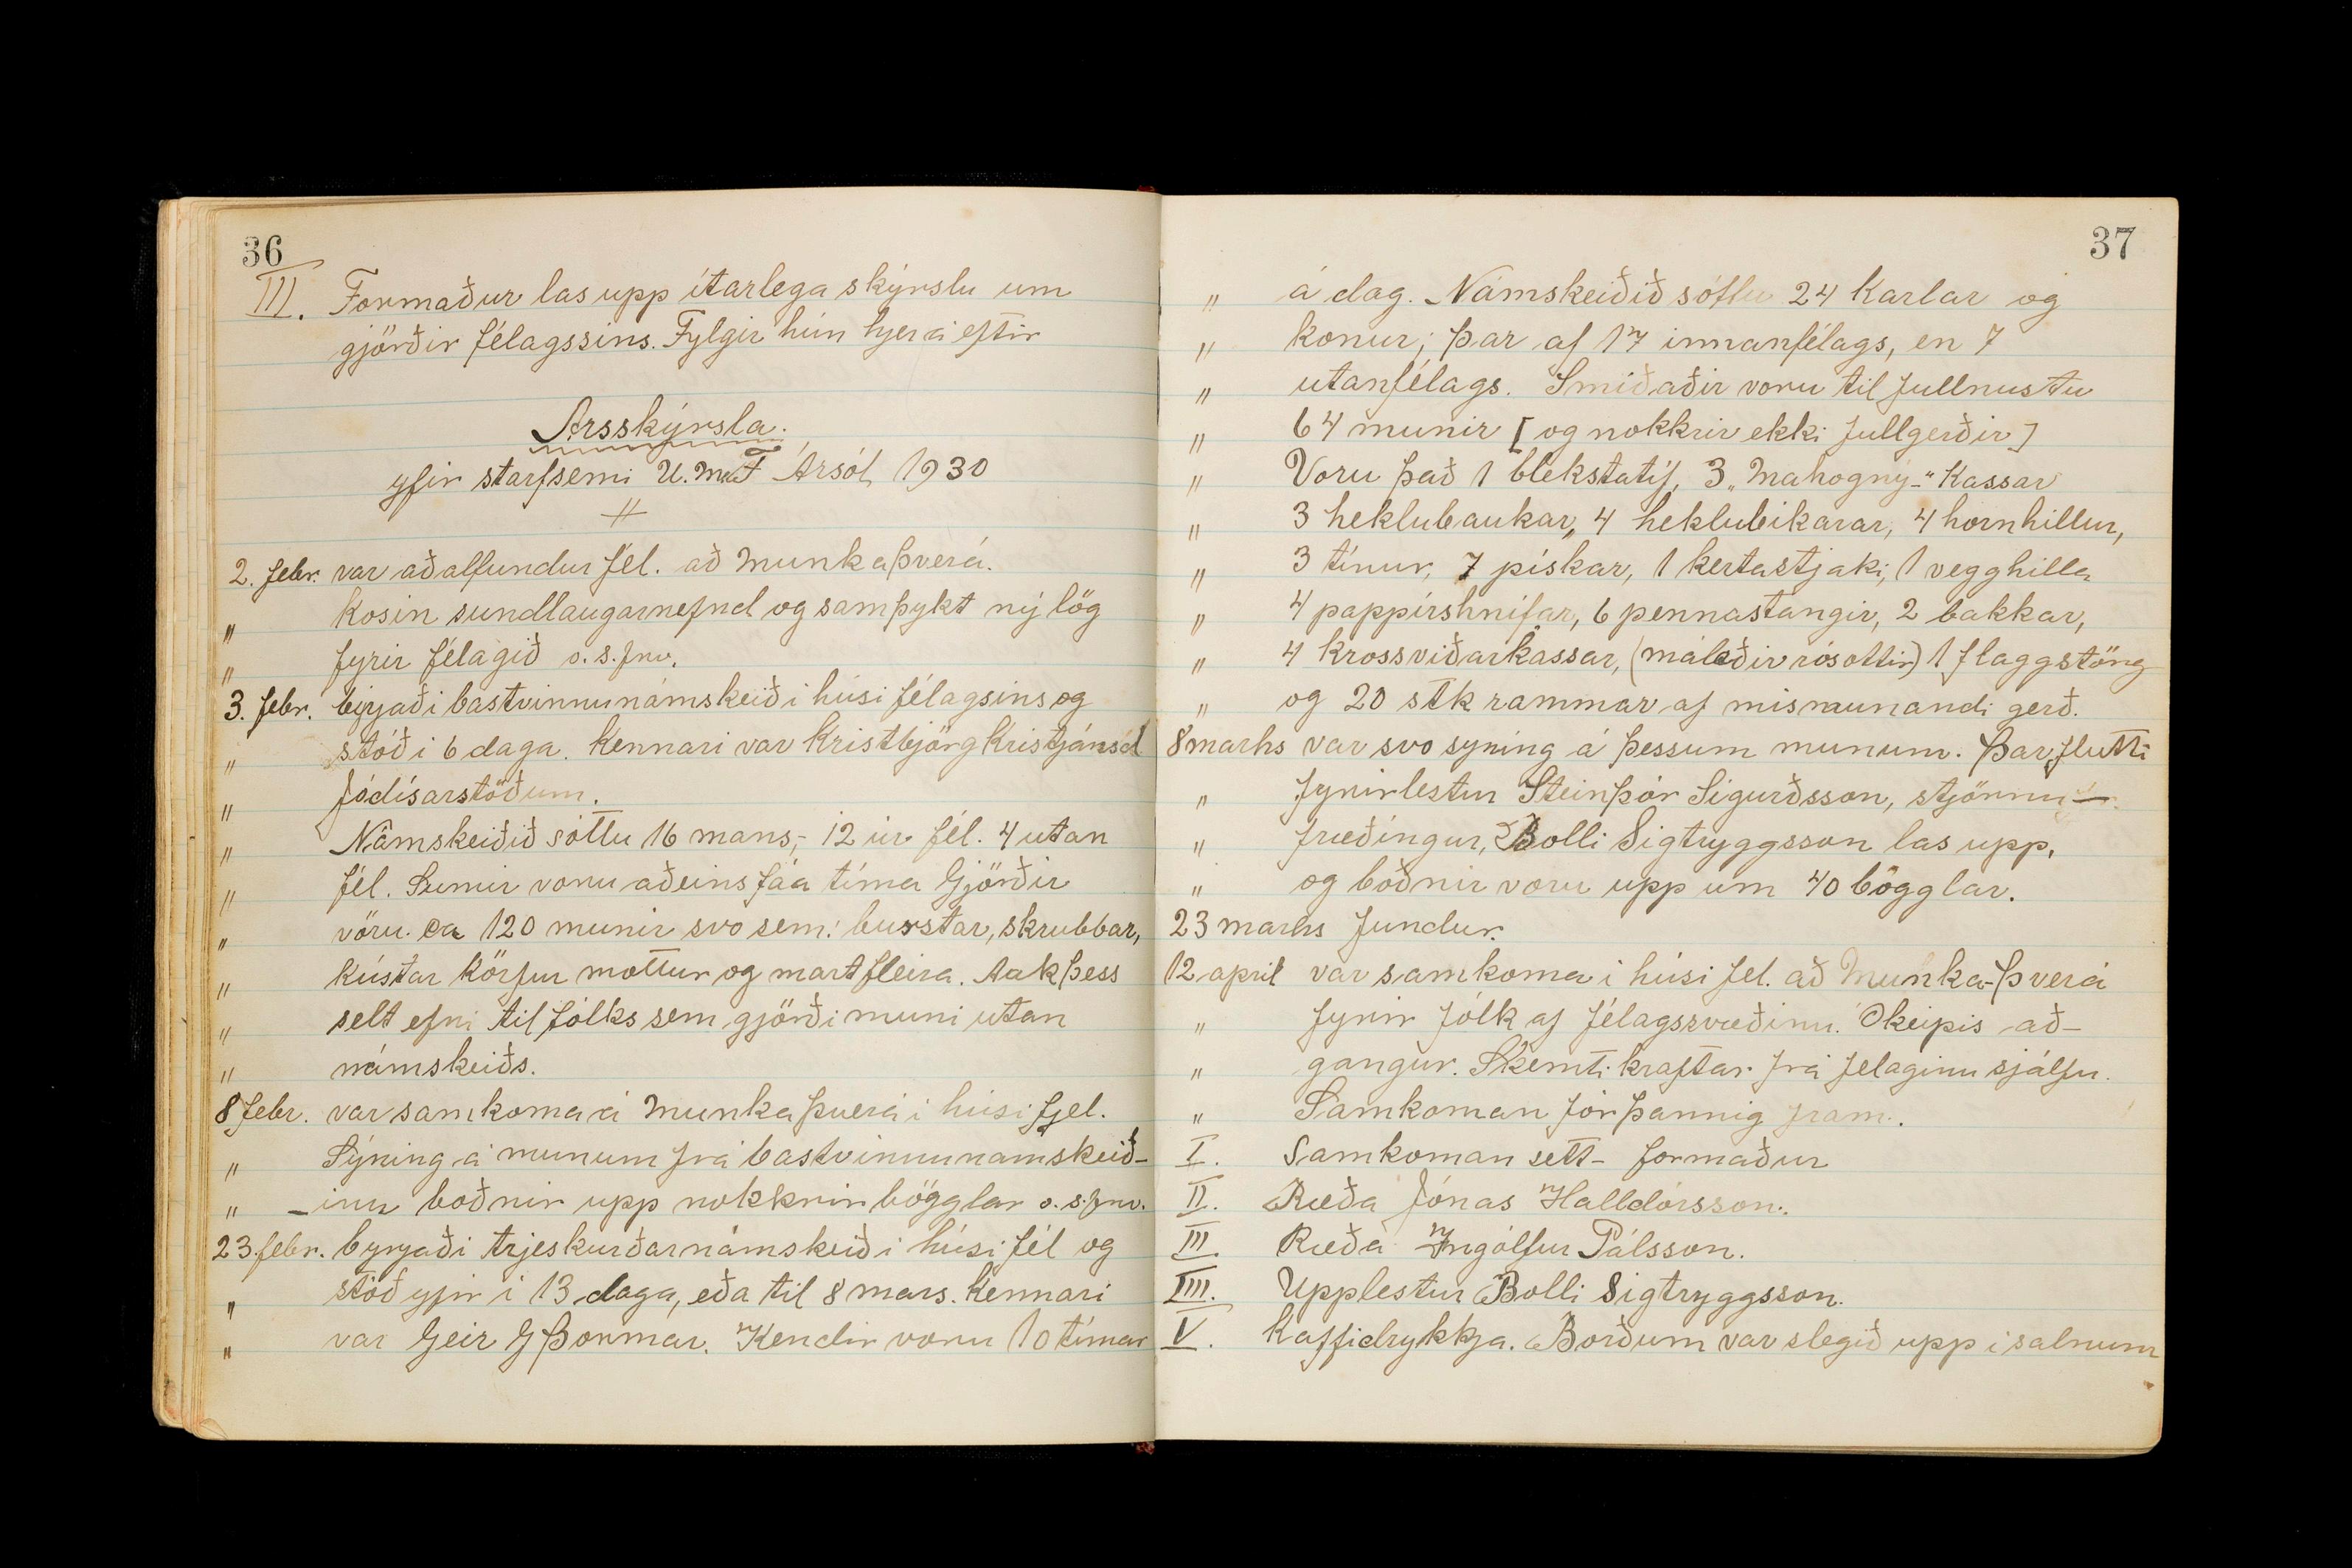 36
III. Formaður las upp ítarlega skýrslu um
gjörðir félagssins. Fylgir hún hjer á eftir
Arsskýrsla.
yfir starfsemi U.M.F Ársól 1930
2. febr. var aðalfundur fél. að Munkaþverá.
" Kosin sundlaugarnefnd og samþykt ný lög
" fyrir félagið o.s.frv.
3. febr. byrjaði bastvinnunámskeið í húsi félagsins og
" stóð í 6 daga. Kennari var Kristbjörg Kristjánsd
" Jódísarstöðum.
" Námskeiðið sóttu 16 mans,- 12 úr fél. 4 utan
" fél. Sumir voru aðeins fáa tíma Gjörðir
" vöru ca 120 munir svo sem: burstar, skrubbar,
" kústar körfur mottur og mart fleira. Auk þess
" selt efni til fólks sem gjörði muni utan
" námskeiðs.
8 febr. var samkoma á Munkaþverá í húsi fjel.
" Sýning á munum frá bastvinnunámskeið-
" -inu boðnir upp nokkrir bögglar o.s.frv.
23. febr. byrjaði trjeskurðarnámskeið í húsi fél og
" stóð yfir í 13 daga, eða til 8 mars. Kennari
" var Geir G Þormar. Kendir voru 10 tímar
37
" á dag. Námskeiðið sóttu 24 Karlar og
" konur; þar af 17 innanfélags, en 7
" utanfélags. Smiðaðir voru til fullnustu
" 64 munir [og nokkrir ekki fullgerðir]
" Voru það 1 blekstatíf, 3 „Mahogný-" Kassar
" 3 heklubaukar, 4 heklubikarar, 4 hornhillur,
" 3 tínur, 7 pískar, 1 kertastjaki, 1 vegghilla
" 4 pappírshnífar, 6 pennastangir, 2 bakkar,
" 4 krossviðarkassar, (máleðir rósottir) 1 flaggstöng
" og 20 stk rammar af mismunandi gerð.
8 marhs var svo syning á þessum munum. Þar flutti
" fyrirlestur Steinþór Sigurðsson, stjörnu-
" fræðingur, Bolli Sigtryggsson las upp,
" og boðnir voru upp um 40 bögglar.
23 marhs fundur.
12 april var samkoma í húsi fel. að Munka-þverá
" fyrir fólk af félagssvæðinu. Okeipis að-
" gangur. Skemtikraftar frá felaginu sjálfu.
" Samkoman fór þannig fram.
I. Samkoman sett- formaður
II. Ræða Jónas Halldórsson.
III. Ræða Ingólfur Pálsson.
IIII. Upplestur Bolli Sigtryggsson.
V. Kaffidrykkja. Borðum var slegið upp í salnum